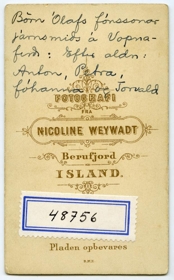 Börn Olafs Jónssonar
járnsmiðs á Vopna-
firði: Eftir aldri:
Anton, Petra,
Jóhanna og Torvald
FOTOGRAFI
FRA
NICOLINE WEYWADT
Berufjord
ISLAND.
48756
Pladen opbevares